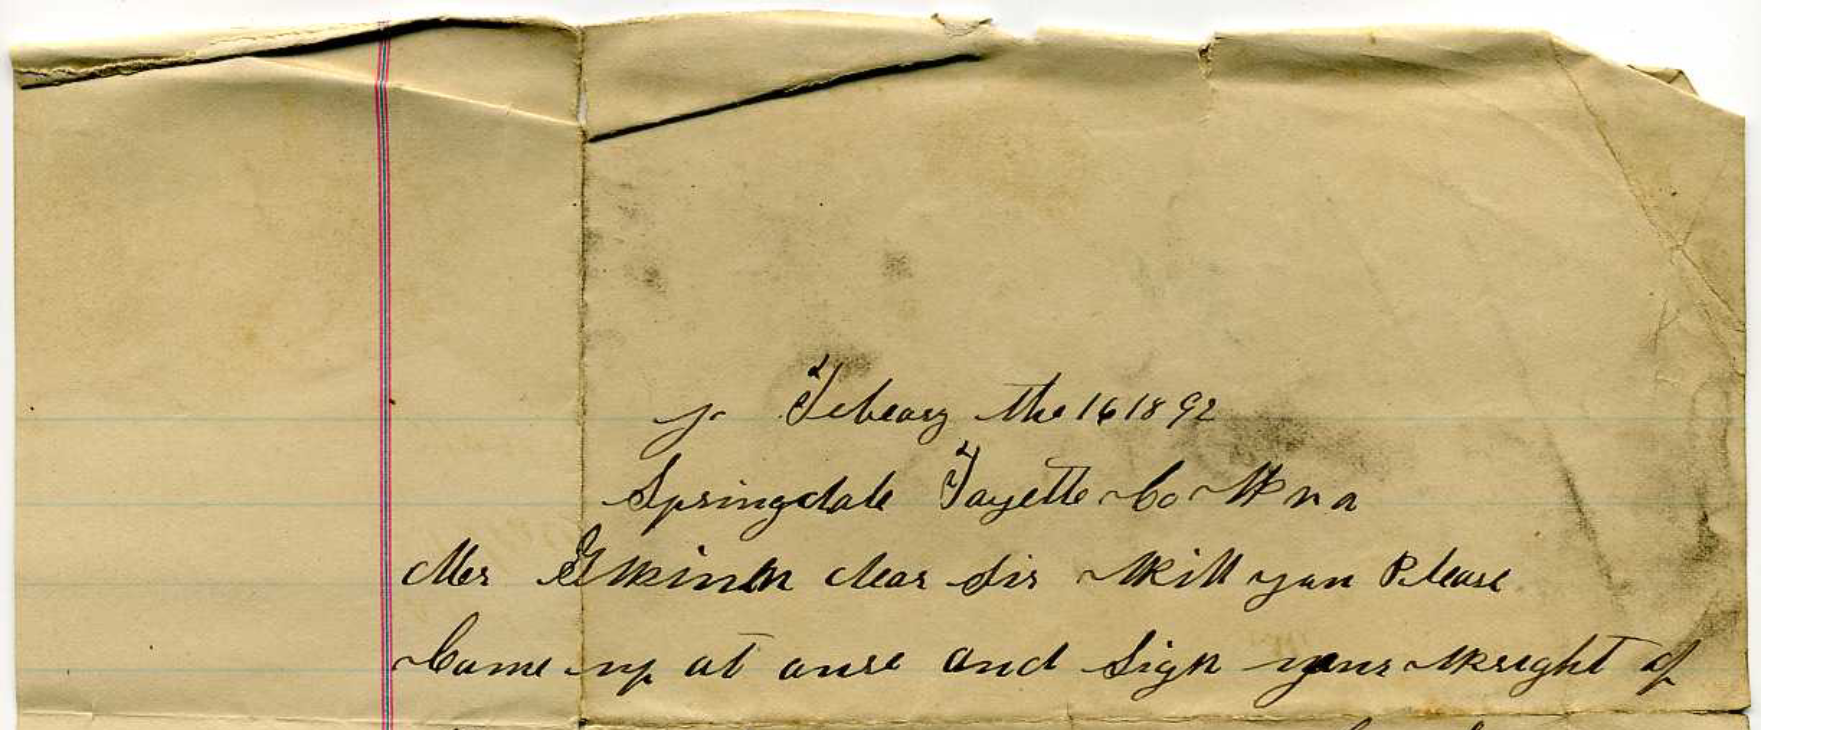 Febeary the 16 1892
Springdale Fayette Co W va
Mr dear Sir Will you Please
Come up at onse and Sign your wright of